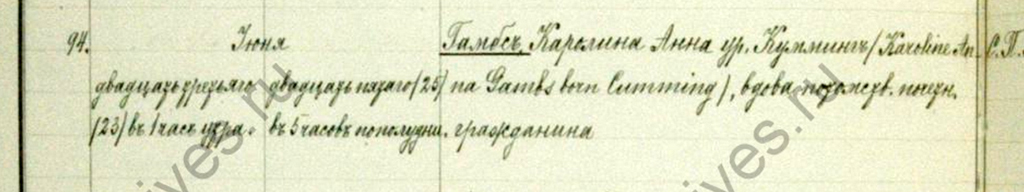 94. Июня Гамбсъ, Каролина Анна ур. Куммингъ /Karoline An- С.П.
двадцать третьяго двадцать пятаго /25/ na Gambs born Cumming/, вдова потомств. почетн.
/23/ въ 1 часъ утра. въ 5 часовъ пополудни. гражданина
ives.ru
ives.ru